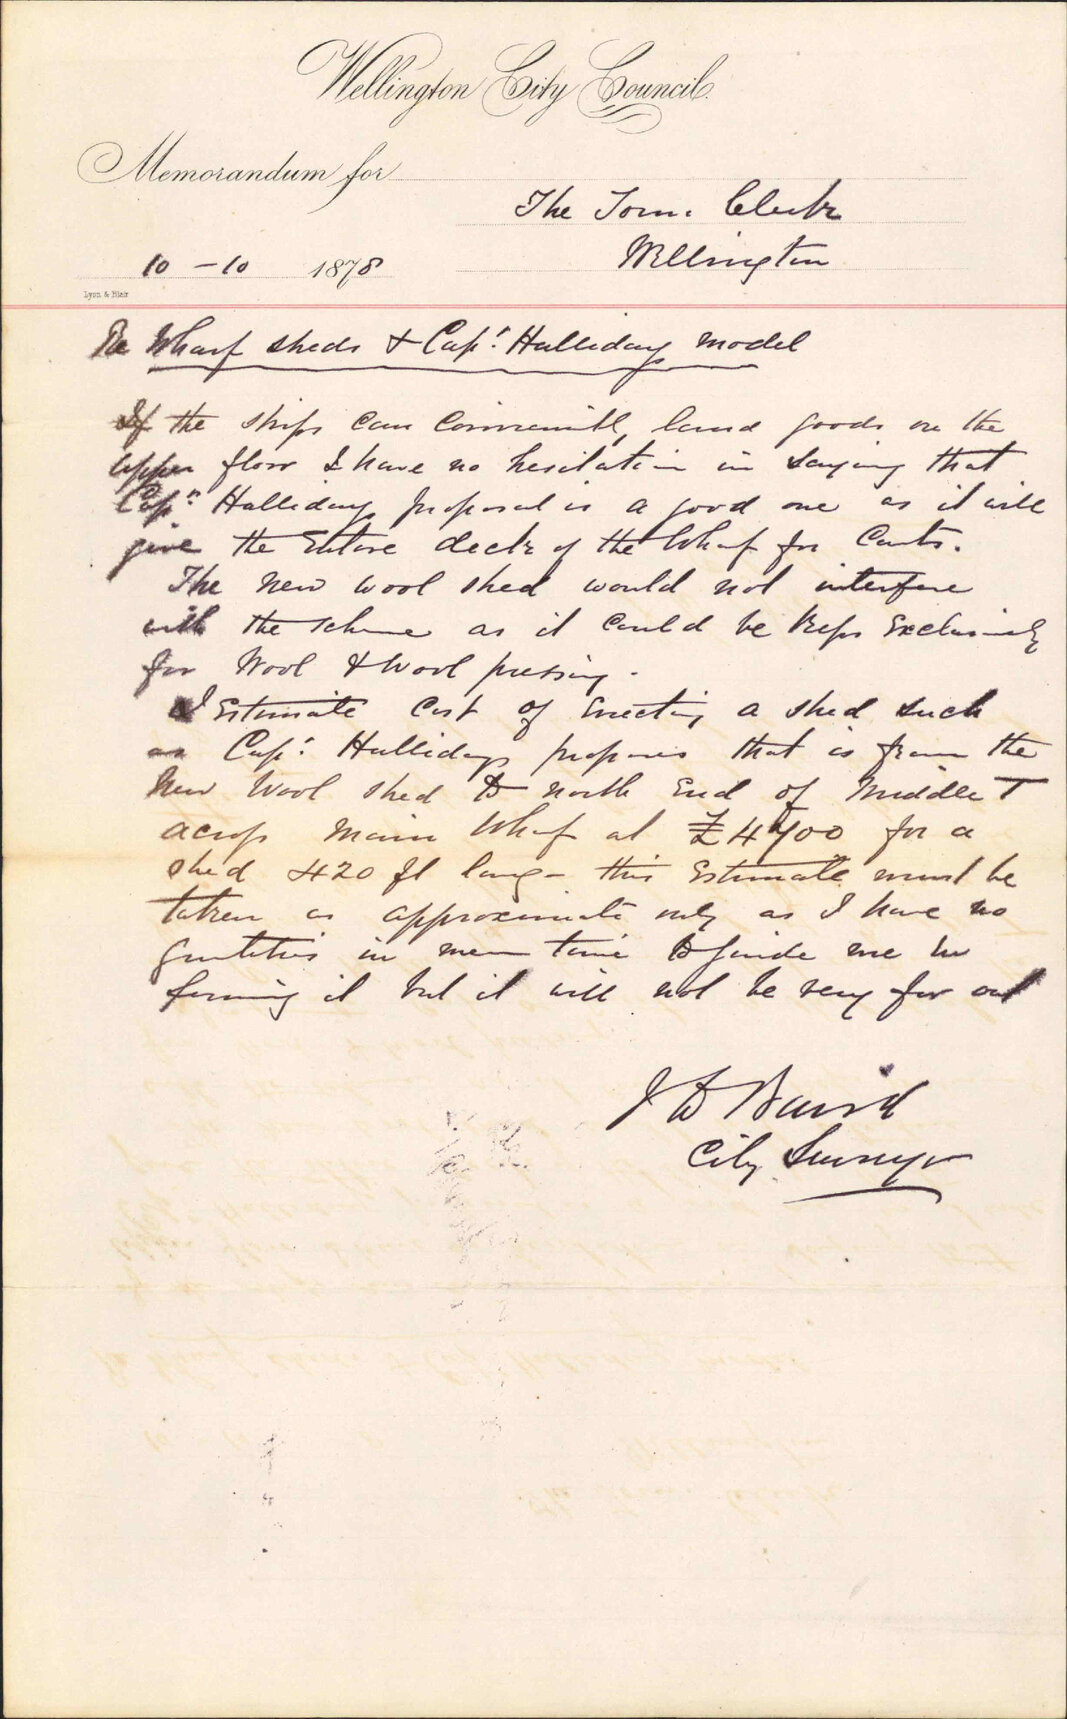 Wellington City Council.
Memorandum for
The Town Clerk
Wellington
10 - 10 1878
Lyon & Blair
Re Wharf sheds & Capt Hallidays model
If the ships can conveniently land goods on the
upper floor I have no hesitation in saying that
Captn Hallidays proposal is a good one as it will
give the Entire deck of the Wharf for Carts.
The new wool shed would not interfere
with the scheme as it could be kept Exclusively
for Wool & Wool pressing.
I Estimate Cost of Erecting a shed such
as Capt Halliday proposes that is from the
New Wool shed to north End of Middle T
across main Wharf at £4700 for a
shed 420 ft long - this Estimate must be
taken as approximate only as I have no
quantities in mean time to guide me in
forming it but it will not be very far out
J D Baird
City Surveyor